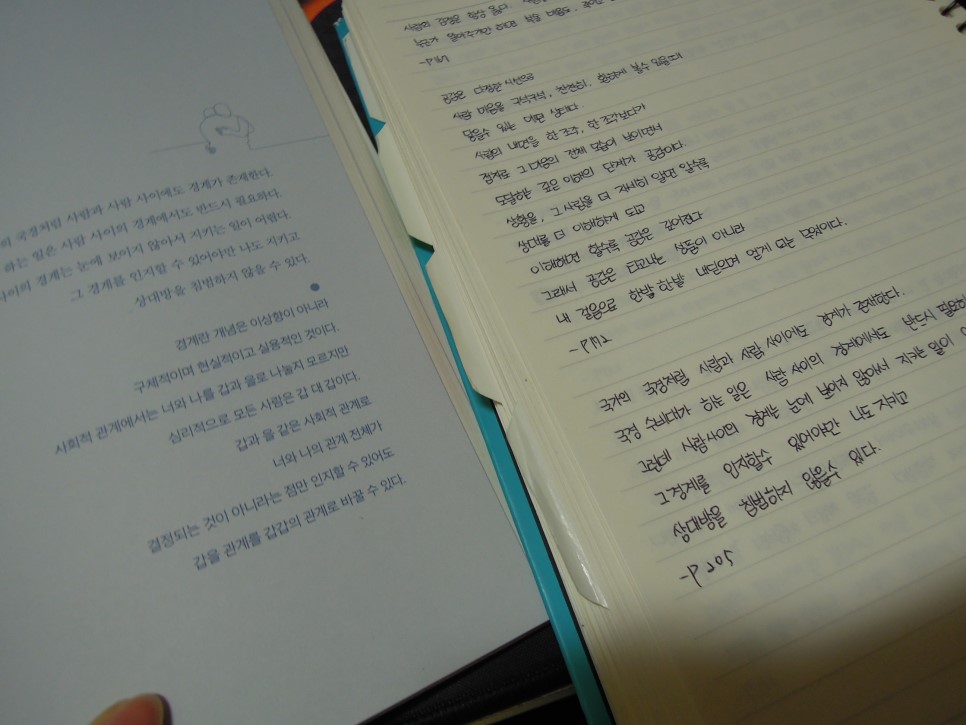 의 국경처럼 사람과 사람 사이에도 경계가 존재한다.
하는 일은 사람 사이의 경계에서도 반드시 필요하다.
사이의 경계는 눈에 보이지 않아서 지키는 일이 어렵다.
그 경계를 인지할 수 있어야만 나도 지키고
상대방을 침범하지 않을 수 있다.
경계란 개념은 이상향이 아니라
구체적이며 현실적이고 실용적인 것이다.
사회적 관계에서는 너와 나를 갑과 을로 나눌지 모르지만
심리적으로 모든 사람은 갑 대 갑이다.
갑과 을 같은 사회적 관계로
너와 나의 관계 전체가
결정되는 것이 아니라는 점만 인지할 수 있어도
갑을 관계를 갑갑의 관계로 바꿀 수 있다.
사람의 감정은 항상 옳다.
누군가
공감은 다정한 시선으로
사람 마음을 구석구석, 찬찬히, 환하게 볼수 있을때
닿을수 있는 어떤 상태다.
사람의 내면을 한 조각, 한 조각보다가
점차로 그 마음의 전체 모습이 보이면서
도달하는 깊은 이해의 단계가 공감이다.
상황을, 그 사람을 더 자세히 알면 알수록
상대를 더 이해하게 되고
이해하면 할수록 공감은 깊어진다
그래서 공감은 타고나는 성품이 아니라
내 걸음으로 한발 한발 내딛으며 얻게 되는 무엇이다.
국가의 국경처럼 사람과 사람 사이에도 경계가 존재한다.
국경 수비대가 하는 일은 사람 사이의 경계에서도 반드시 필요하
그런데 사람사이의 경계는 눈에 보이지 않아서 지키는 일이
그 경계를 인지할수 있어야만 나도 지키고
상대방을 침범하지 않을수 있다.
-P 205